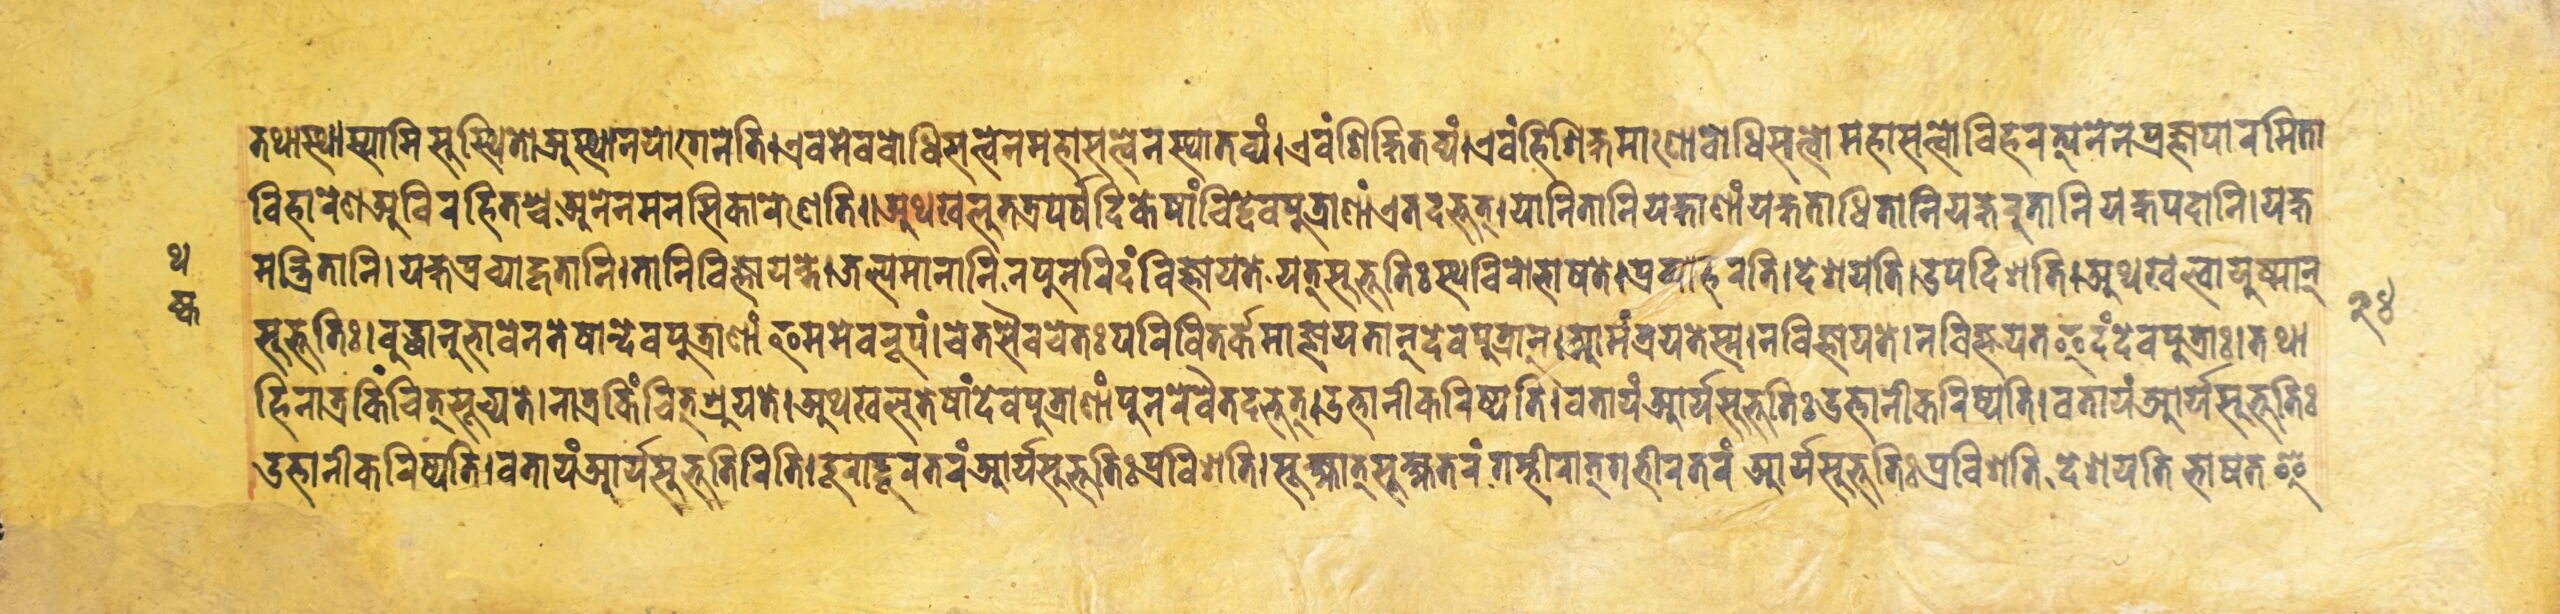 तथास्थास्यामिसुस्थितोअस्थानयोगेनेति।एवमेवबोधिसत्वेनमहासत्वेनस्थातव्यं।एवंशिक्षितव्यं।एवंहिशिक्षमाणोबोधिसत्वोमहासत्वोविहरत्यनेनप्रज्ञापारमिता
विहारेणअविरहितश्चअनेनमनसिकारेणेति॥अथखलुतत्रपर्षदिकेषांचिद्देवपुत्राणांएतदभूत्।यानितानियक्षाणांयक्षभाषितानियक्षरुतानियक्षपदानि।यक्ष
मन्त्रितानि।यक्षप्रव्याहृतानि।तानिविज्ञायन्ते।जल्पमानानिनपुनरिदंविज्ञायतेयत्सुभूतिःस्थविरोभाषते।प्रव्याहरति।देशयति।उपदिशति।अथखल्वायुष्मान्
सुभूतिः।बुद्धानुभावेनतेषान्देवपुत्राणांइममेवरूपं।चेतसैवचेतःपरिवितर्कमाज्ञायतान्देवपुत्रान्।आमंत्रयतेस्म।नविज्ञायते।नविज्ञयतइदंदेवपुत्राः।तथा
हिनात्रकिंचित्सूच्यते।नात्रकिंचित्श्रुयते।अथखलुतेषांदेवपुत्राणांपुनरेवैतदभूत्।उत्तानीकरिष्यति।वतायंआर्यसुभूतिःउत्तानीकरिष्यति।वतायंआर्यसुभूतिः
उत्तानीकरिष्यति।वतायंआर्यसुभूतिरिति।दूराद्दूरतरंआर्यसुभूतिःप्रविशति।सूक्ष्मात्सूक्ष्मतरंगम्भीरात्गभीरतरंआर्यसुभूतिःप्रविशतिदेशयतिभाषतइ